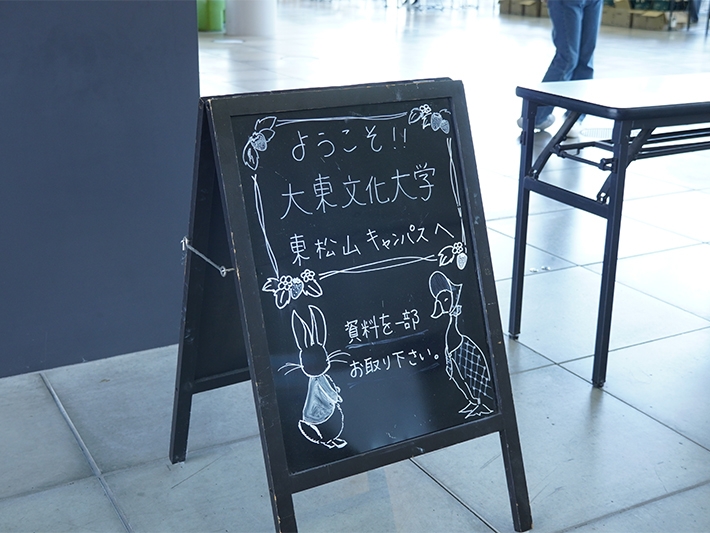 ようこそ!!
大東文化大学
東松山キャンパスへ
資料を一部
お取り下さい。